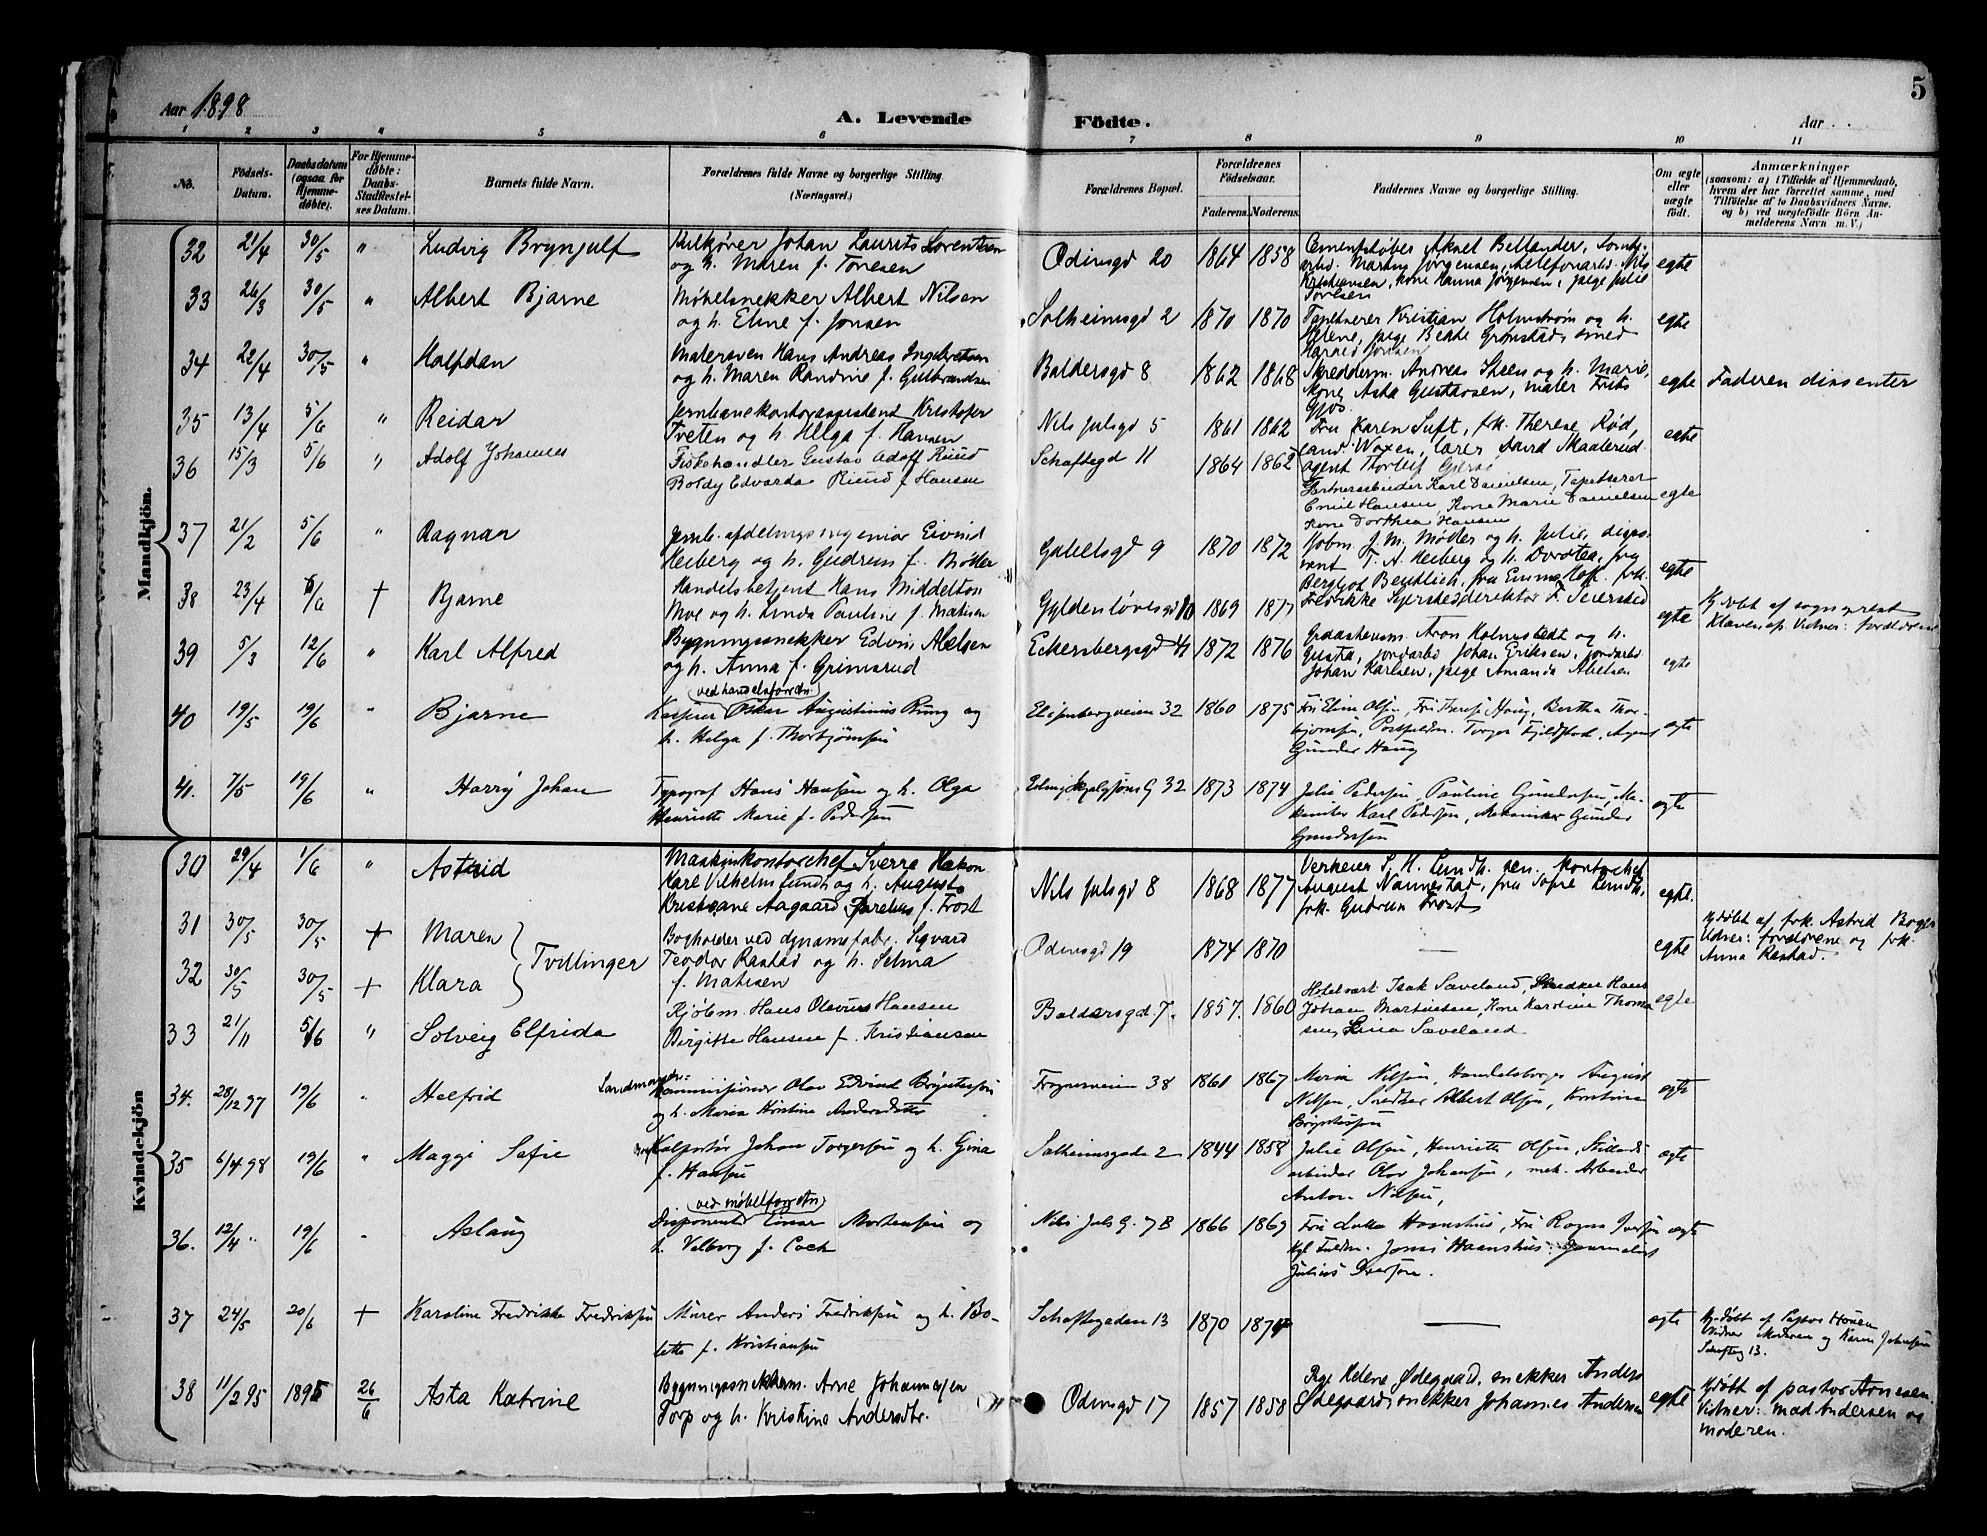 5
Aar 1898
A. Levende Födte.
Aar
1 2 3 4 5 6 7 8 9 10 11
No.
Födsels-
Datum.
Daabsdatum
(ogsaa for
Hjemme-
døbte).
For Hjemme-
døbte:
Daabs-
Stadfæstel-
ses Datum.
Barnets fulde Navn.
Forældrenes fulde Navne og borgerlige Stilling.
(Næringsvei.)
Forældrenes Bopæl.
Forældrenes
Födselsaar.
Faderens. Moderens.
Faddernes Navne og borgerlige Stilling.
Om ægte
eller
uægte
födt.
Anmærkninger
(saasom: a) i Tilfælde af Hjemmedaab,
hvem der har forrettet samme, med
Tilföielse af to Daabsvidners Navne,
og b) ved uægtefödte Börn An-
melderens Navn m. V.)
Mandkjön.
32 21/4 30/5 " Ludvig Brynjulf
Kulkjører Johan Laurits Lorentsen
og h. Maren f. Tonesen
Odinsgd 20 1864 1858
Cementstøber Aksel Bellander,
arbd. Martin Jørgensen, Telefonarbd. Nils
Kristiansen, kone Hanna Jørgensen, pige Julie
egte
33 26/3 30/5 " Albert Bjarne
Møbelsnekker Albert Nilsen
og h. Eline f. Jonsen
Solheimsgd 2 1870 1870
Tapetserer Kristian Holmstrøm og h.
Helene, pige Beate Grønstad, smed
Harald Jonsen
egte
34 22/4 30/5 " Halfdan
Malersven Hans Andreas Ingebretsen
og h. Maren Randine f. Gulbrandsen
Baldersgd 8 1862 1868
Skredderm. Andreas Steen og h. Marie,
kone Asta Gustavsen, maler Frits
egte
Faderen dissenter
35 13/4 5/6 " Reidar
Jernbanekontorassistent Kristofer
Tveten og h. Helga f. Hansen
Nils Julsgd 5 1861 1862
Fru Karen Tuft, frk. Therese Rød,
cand. Woxen, lærer David Skaalerud
agent Thorleif
egte
36 15/3 5/6 " Adolf Johannes
Fiskehandler Gustav Adolf Ruud
Boldy Edvarda Ruud f. Hansen
Schaftegd 11 1864 1862
Gartnerarbeider Karl Danielsen, Tapetserer
Emil Hansen, Kone Marie Danielsen
Kone Dorthea Hansen
egte
37 21/2 5/6 " Ragnar
Jernb. afdelingsingeniør Eivind
Heiberg og h. Gudrun f. Møller
Gabelsgd 9 1870 1872
Kjøbm. J. M. Møller og h. Julie, dispo-
nent T. A. Heiberg og h. Dorotea, fru
Bergljot Bentlich, fru Emma Hoff. frk.
Fredrikke Sejersted direktør F. Sejersted
egte
38 23/4 6/6 + Bjarne
Handelsbetjent Hans Middelton
Moe og h. Linda Pauline f. Matisen
Gyldenløvesgd 10 1869 1877
egte
Hj. døbt af sogneprest
Klavenes. Vidner: forældrene
39 5/3 12/6 " Karl Alfred
Bygningssnekker Edvin Abelsen
og h. Anna f. Grimsrud
Eckersbergsgd 41 1872 1876
Aron Holmstedt og h.
Gusta, jordarbd Johan Eriksen, jordarbd
Johan Karlsen, pige Amanda Abelsen
egte
40 19/5 19/6 " Bjarne
(ved handelsforretn.)
Kasserer Oskar Augustinus Ring og
h. Helga f. Thorbjørnsen
Elisenbergveien 32 1860 1875
Fru Elina Olsen, Fru Josef. Haug, Bertha Thor-
bjørnsen, Postfuldm. Torger Fjeldstad, Agent
Gunder Haug
egte
41. 7/5 19/6 " Harry Johan
Typograf Hans Hansen og h. Olga
Henriette Marie f. Pedersen
Eiling Skjalgsøns G 32 1873 1874
Julie Pedersen, Pauline Gundersen, Me-
kaniker Karl Pedersen, Mekaniker Gunder
Gundersen
egte
Kvindekjön
30 29/4 1/6 " Astrid
Maskinkontorchef Sverre Hakon
Karl Vilhelm Lundh og h. Augusta
Kristiane Aagaard f. Frost
Nils Julsgd 8 1868 1877
Verkeier S. H. Lundh. sen. Kontorchef
August Nannestad, fru Sofie Lundh,
frk. Gudrun Frost
egte.
31 30/5 30/5 + Maren
32 30/5 30/5 + Klara
Tvillinger
Bogholder ved dynamitfabr. Sigvard
Teodor Rastad og h. Selma
f. Matisen
Odinsgd 19 1874 1870
—
egte
Hj. døbt af frk. Astrid Boger
Vidner: forældrene og frk.
Anna Rastad.
33 21/11 5/6 " Solveig Elfrida
Kjøbm. Hans Olavius Hansen
Birgitte Hansen f. Kristiansen
Baldersgd. 7. 1857. 1860
Hotelvært Isak Sæveland, Snedker Hans
Johan Martinsen, Kone Karoline Thom-
sen, Lina Sæveland.
egte
34. 28/12 97 19/6 " Helfrid
Kommissionær Olov Edvind Bryntesen
og h. Maria Kristine Andersdatter
Frognerveien 38 1861 1867
Maria Nilsen, Handelsborger August
Nilsen, Snedker Albert Olsen, Kristina
Bryntesen
egte
35 6/4 98 19/6 " Maggi Sofie
Kolportør Johan Torgersen og h. Gina
f. Hansen
Solheimsgaden 2 1844 1858
Julie Olsen, Henriette Olsen,
arbeider Olov Johansen, mek. Arbeider
Anton Nilsen,
egte
36. 12/4 " 19/6 " Aslaug
(ved møbelforretn.)
Disponent Einar Mortensen og
h. Valborg f. Cock
Nils Juls G. 7 B 1866 1869
Fru Lulla Haanshus, Fru Ragna Iversen
Kgl Fuldm. Jonas Haanshus, Journalist
Julius Iversen.
egte
37 24/5 20/6 + Karoline Fredrikke Fredriksen
Murer Anders Fredriksen og h. Bo-
lette f. Kristiansen
Schaftegaden 13 1870 1874
—
egte
Hj. døbt af Pastor Houen
Vidner Moderen og Karen Johansen
Schafteg 13.
38 11/2 95 1895 26/6 Asta Katrine
Bygningssnekkerm. Arne Johannesen
Torp og h. Kristine Andersdtr.
Odinsgd 17 1857 1858
Pige Helene Ødegaard, snekker Anders
Ødegaard, snekker Johannes Andersen
egte
Hj. døbt af pastor Arnesen
Vidner: mad Andersen og
moderen.